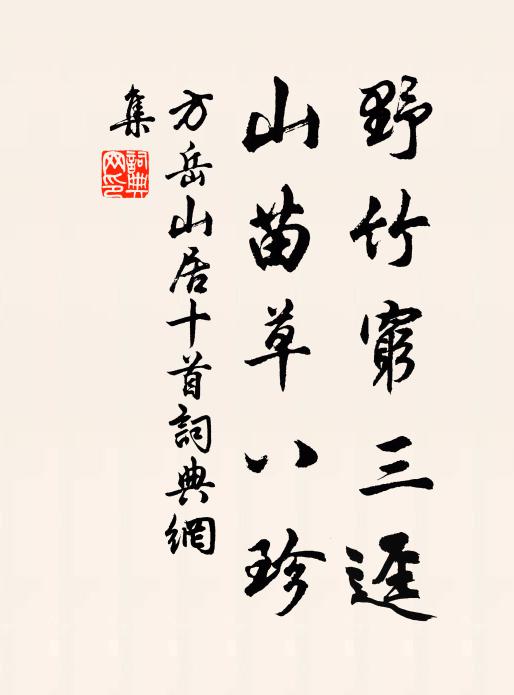 野竹窮三逕
山苗草八珍
方岳山居十首詞典網
集
詞典
网印